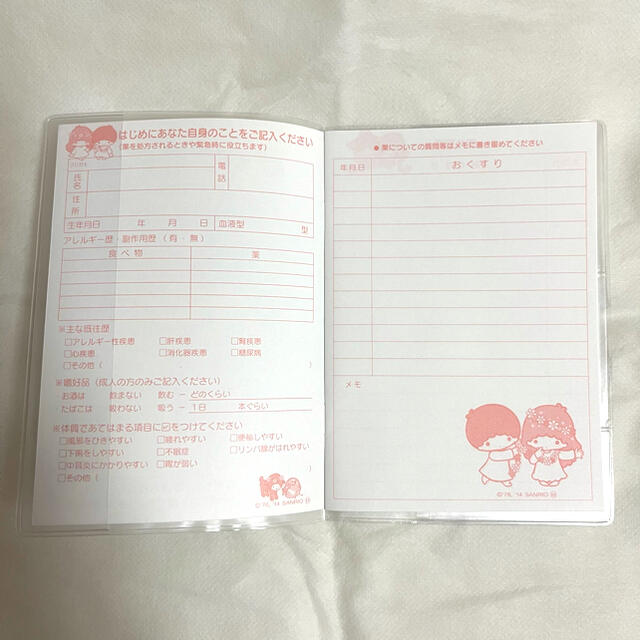 はじめにあなた自身のことをご記入ください
(薬を処方されるときや緊急時に役立ちます)
氏名
電話
住所
生年月日 年 月 日 血液型 型
アレルギー歴・副作用歴 (有・無)
食べ物 薬
※主な既往歴
□アレルギー性疾患 □肝疾患 □腎疾患
□心疾患 □消化器疾患 □糖尿病
□その他 ( )
※嗜好品 (成人の方のみご記入ください)
お酒は 飲まない 飲む − どのくらい
たばこは 吸わない 吸う − 1日 本ぐらい
※体質であてはまる項目に☑をつけてください
□風邪をひきやすい □疲れやすい □便秘しやすい
□下痢をしやすい □不眠症 □リンパ腺がはれやすい
□中耳炎にかかりやすい □胃が弱い
□その他 ( )
©'76, '14 SANRIO
●薬についての質問等はメモに書き留めてください
年月日 おくすり
メモ
©'76, '14 SANRIO